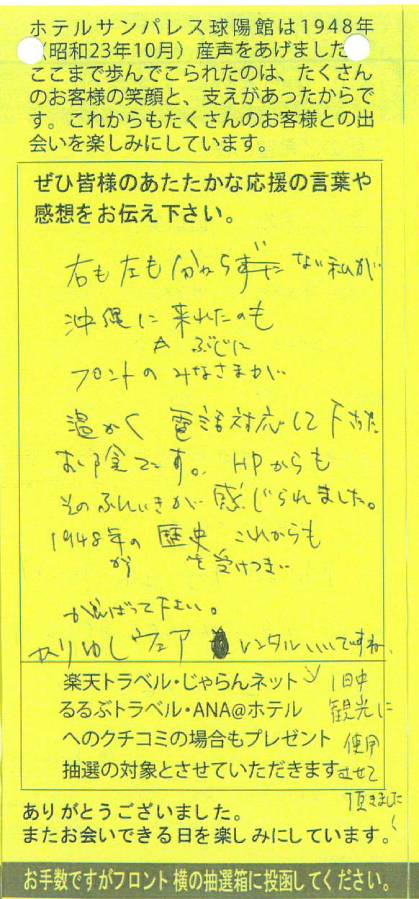 ホテルサンパレス球陽館は1948年
(昭和23年10月)産声をあげました
ここまで歩んでこられたのは、たくさん
のお客様の笑顔と、支えがあったからで
す。これからもたくさんのお客様との出
会いを楽しみにしています。
ぜひ皆様のあたたかな応援の言葉や
感想をお伝え下さい。
右も左も分からない私が
沖縄に来れたのも
ぶじに
フロントのみなさまが
温かく電話対応して下さった
お陰です。HPからも
そのふんいきが感じられました。
1948年の歴史 これからも
が を受けつぎ
がんばって下さい。
かりゆしウェア レンタルいいですね
楽天トラベル・じゃらんネット
るるぶトラベル・ANA@ホテル
へのクチコミの場合もプレゼント
抽選の対象とさせていただきます
1日中
観光に
使用
させて
頂きました
ありがとうございました。
またお会いできる日を楽しみにしています。
お手数ですがフロント横の抽選箱に投函してください。